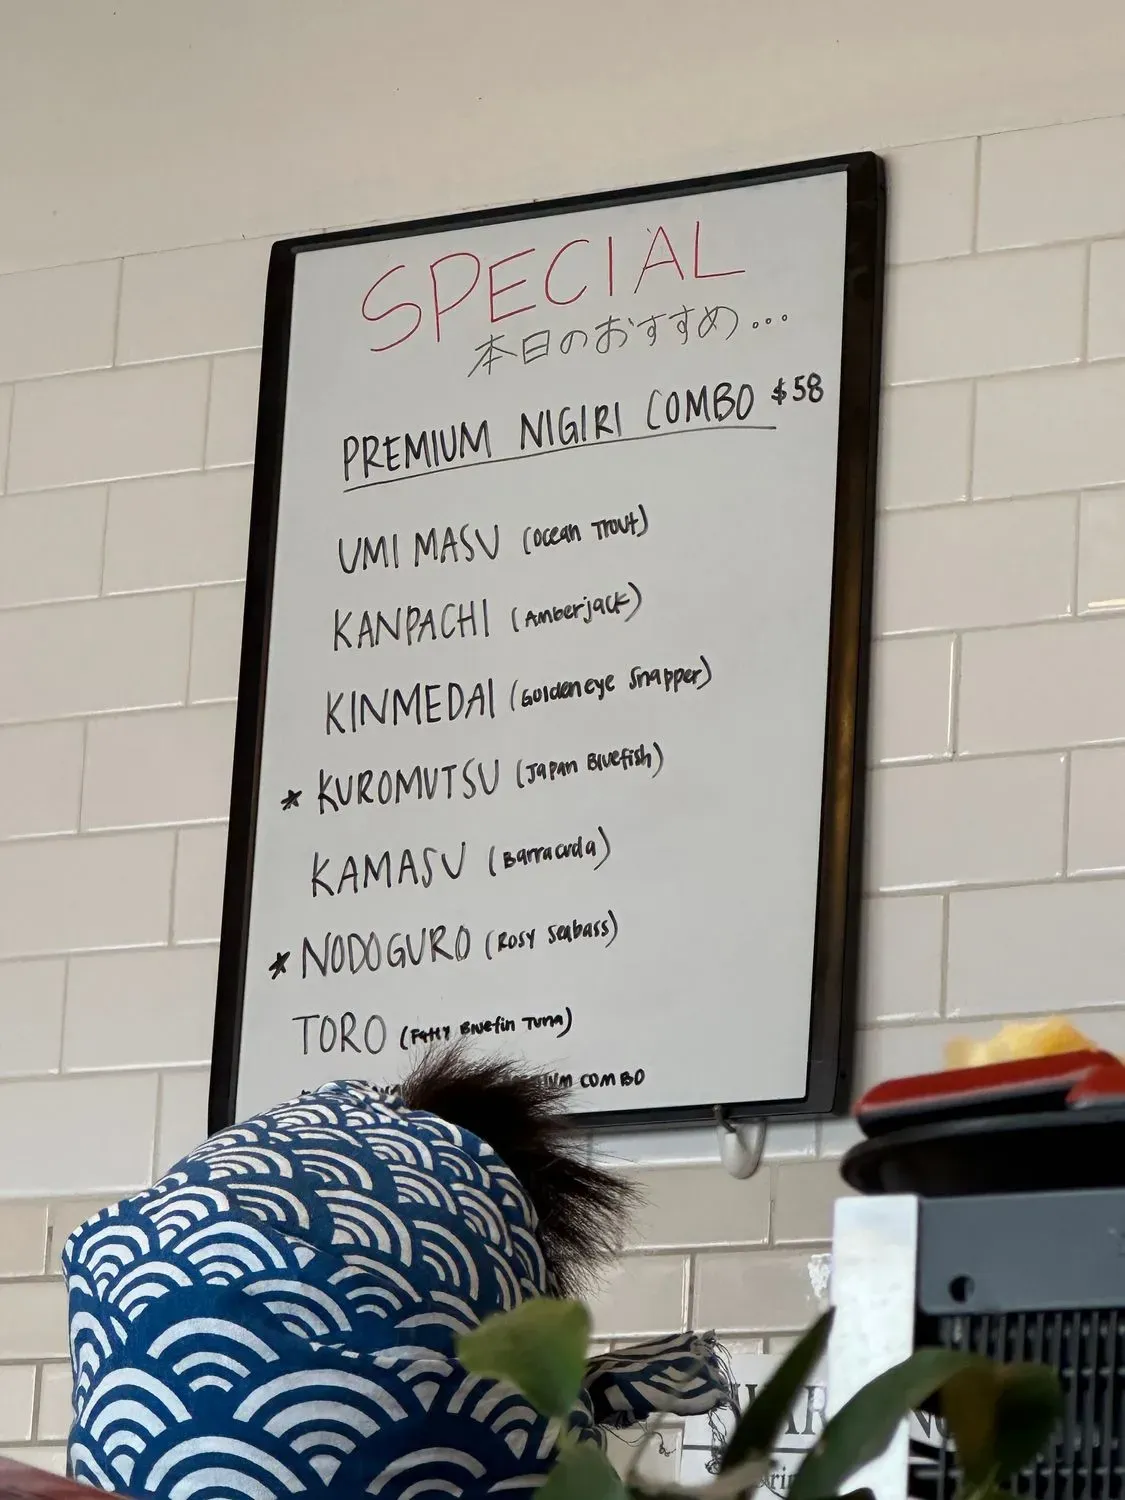 SPECIAL
本日のおすすめ...
PREMIUM NIGIRI COMBO $58
UMI MASU (Ocean Trout)
KANPACHI (Amberjack)
KINMEDAI (Goldeneye Snapper)
* KUROMUTSU (Japan Bluefish)
KAMASU (Barracuda)
* NODOGURO (Rosy Seabass)
TORO (Fatty Bluefin Tuna)
COMBO